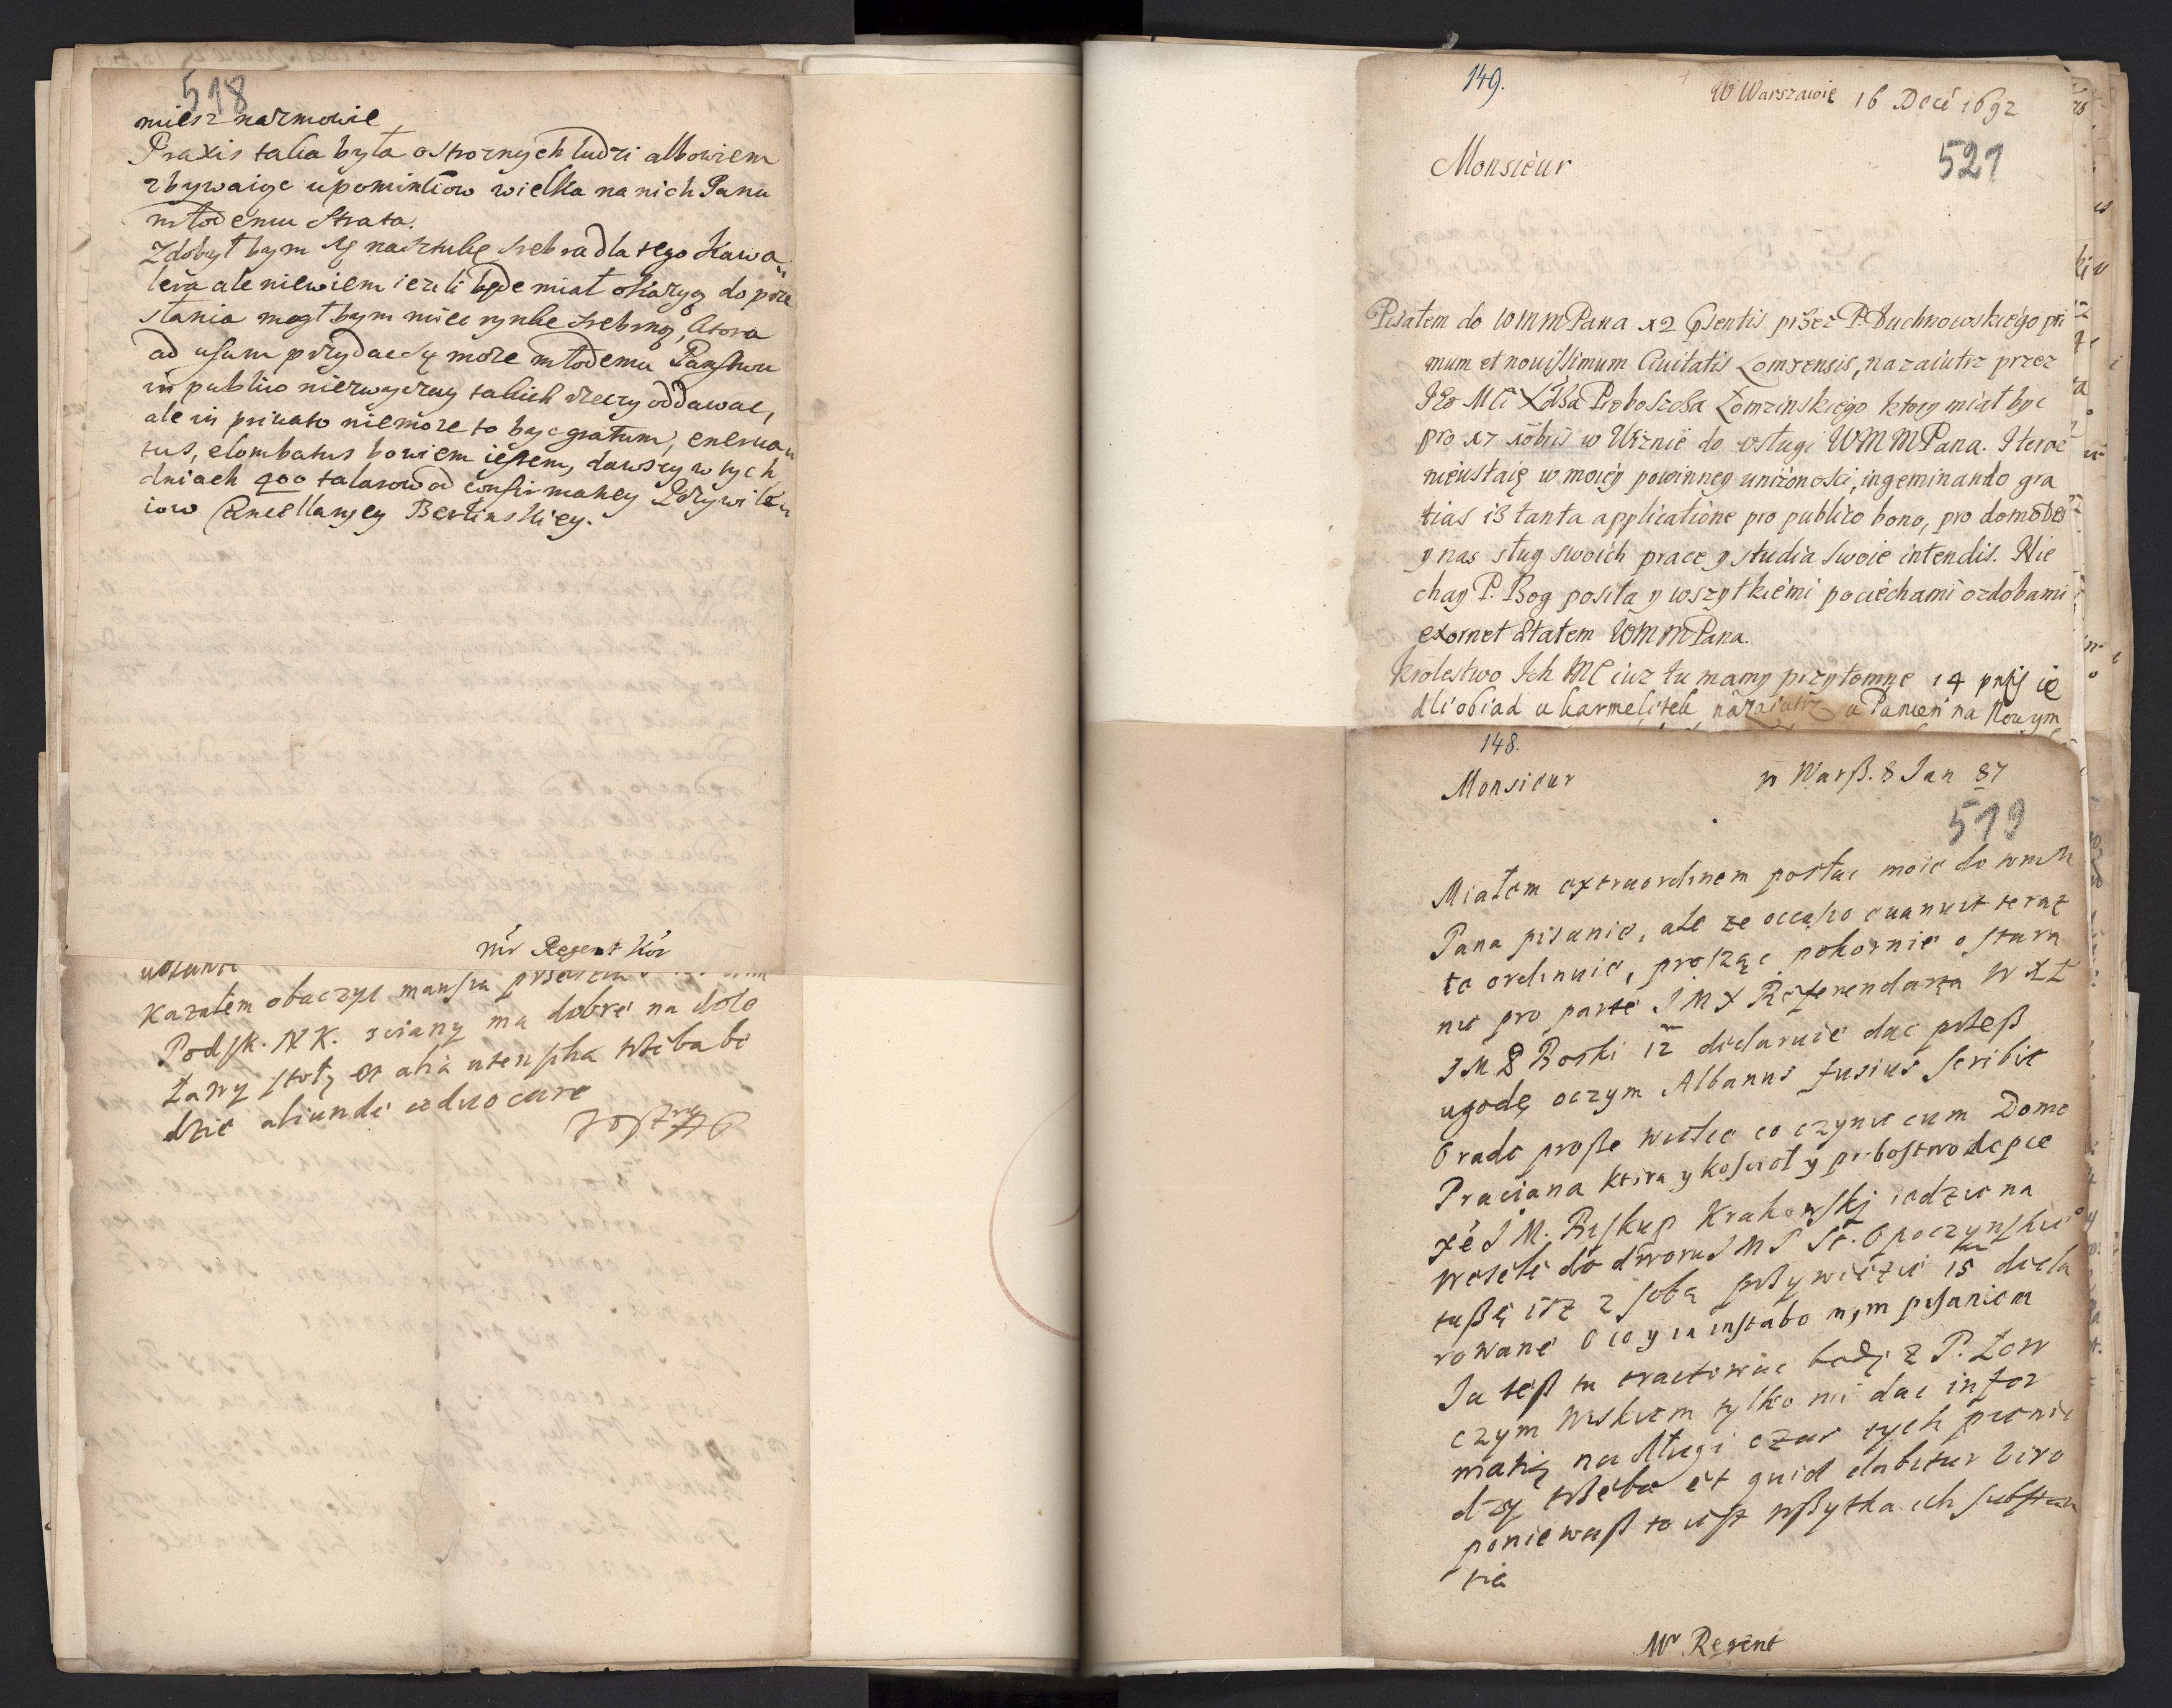 518
miesz na zmowie
Praxis taka była ostroznych ludzi albowiem
zbywaiąc upominkow wielka na nich Panu
młodemu strata.
Zdobył bym się na sztukę srebra dla tego Kawa
lera ale niewiem iezeli będe miał okazyą do prze
słania mogł bym mieć rynkę srebrną, ktora
ad usum przydac się moze młodemu Panstwu
in publico niezwyczay takich rzeczy oddawac,
ale in privato niemoze to byc gratum, enerua
tus, elombatus bowiem iestem, dawszy w tych
dniach 400 talarow od confirmacyey Przywile
iow Cancellaryey Berlinskiey.
Mr Regent Kor
Kazałem obaczyć
Podsk. WK. sciany ma dobre na dole
ławy stoły et alia utensilia trzeba bę
dzie aliunde aduocare
149.
W Warszawie 16 Dec 1692
521
Monsieur
Pisałem do WMMPana 12 psentis przez P. Duchnowskiego pri
mum et nouissimum Ciuitatis Lomzensis, nazaiutrz przez
Jego Mci Xdza Proboszcza Łomzinskiego ktory miał byc
pro 17 w Wiznie do usług WMMPana. I teraz
nieustaię w moiey powinney unizonosci, ingeminando gra
tias is tanta applicatione pro publico bono, pro domo Dei
y nas sług swoich prace y studia swoie intendis. Nie
chay P. Bog posila y wszytkiemi pociechami ozdobami
exornet statem WMMPana.
Krolestwo Ich MC iuz tu mamy przytomne 14 pntis ie
dli obiad u karmelitek nazaiutrz u Panien na Nowym
148.
Monsieur
w Warß. 8 Jan 87
519
Miałem extraordinem posłac moie do WMM
Pana pisanie, ale ze occasio euanuit teraz
to ordinuie, prosząc pokornie o stara
nie pro parte JMX Referendarza WXL
JM X Boski 12 declaruie dac przeß
ugodę oczym Albanus fusius scribit
O rade proße wielce co czynic cum Domo
Praciana ktora y koscioł y probostwo depce
xże JM. Biskup Krakowskj iedzie na
Wesele do dworu JMP St. Opoczynskie
tußę isz z sobą przywiezie 15 decla
rowane O co y ia instabo mym pisaniem
Ja teß tu tractowac będę z P. Łow
czym Wiskiem tylko mi dac infor
matią na długi czas tych pienię
dzy trzeba et quid dabitur Viro
poniewaß to iest wßytka ich substan
tia
Mr Regent